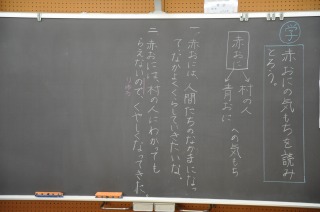 学
赤おにの気もちを読み
とろう。
赤お
村の人
青おに
への気もち
一、赤おには、人間たちのなかまになっ
て、なかよくくらしていきたいな。
二、赤おには、村の人にわかっても
らえないので、くやしくなってきた。